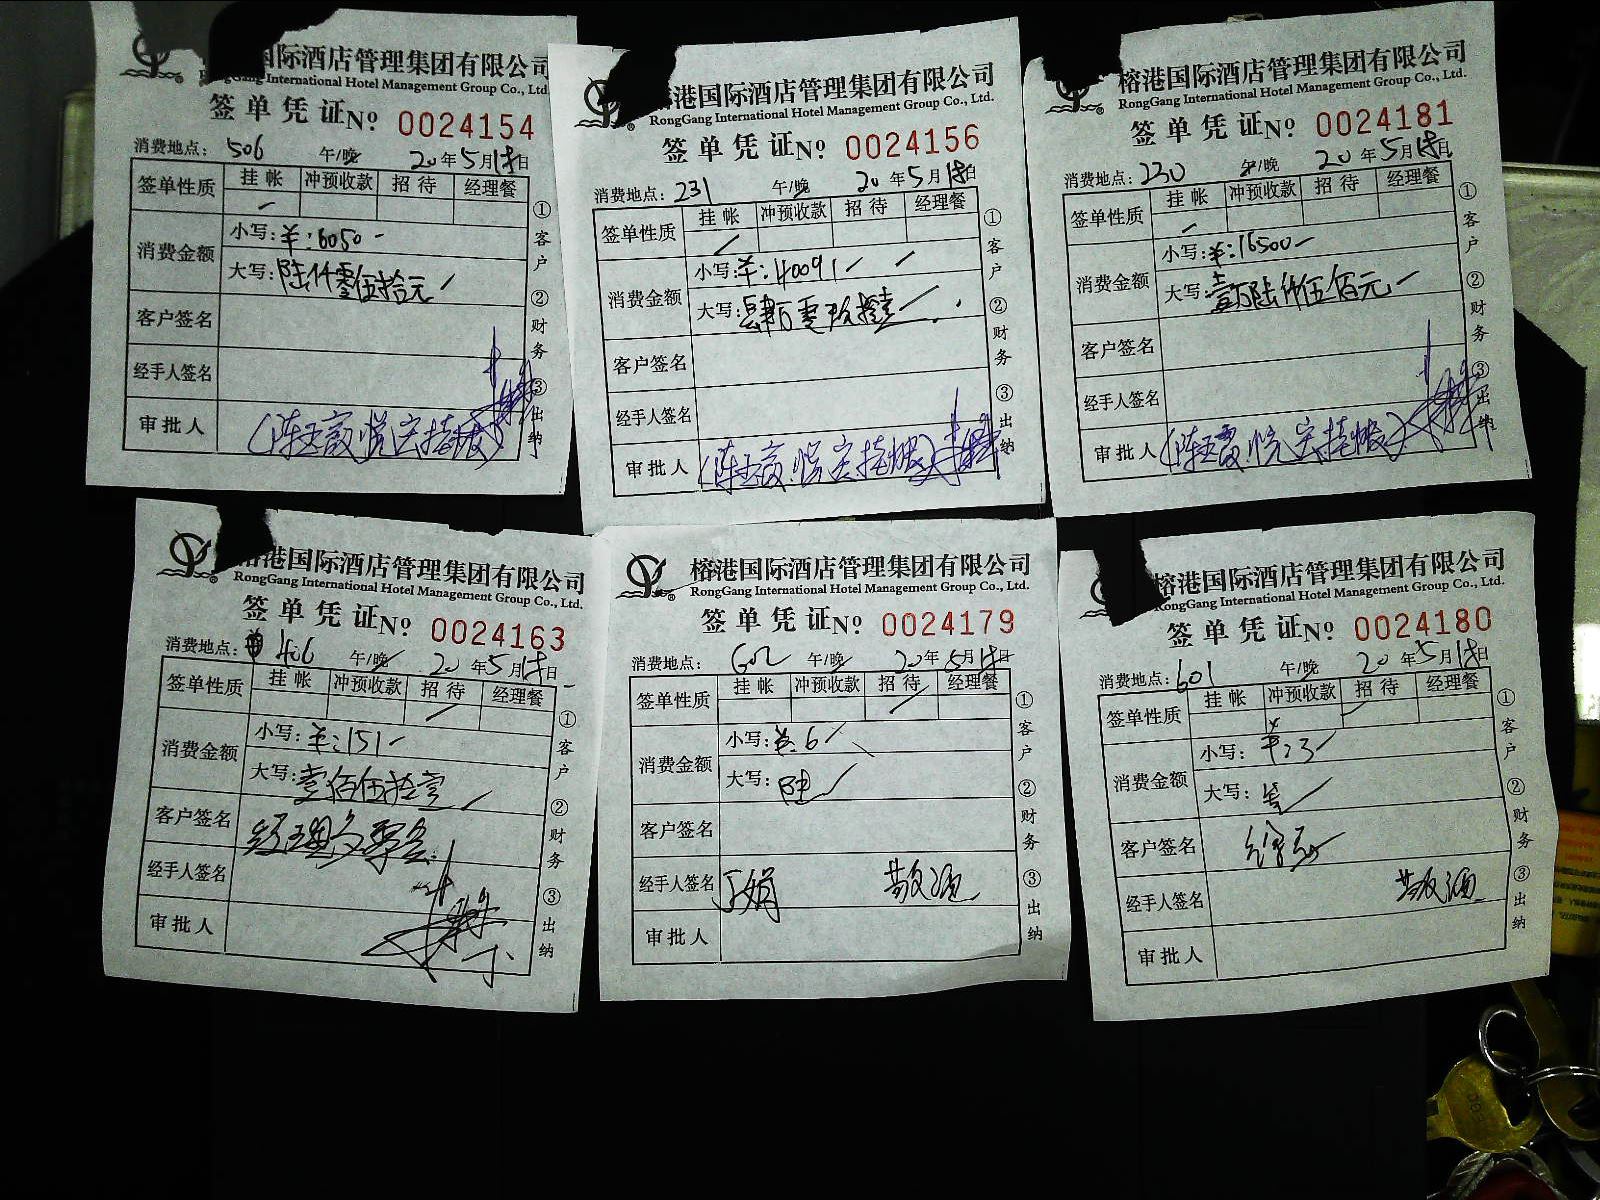 国际酒店管理集团有限公司
RongGang International Hotel Management Group Co., Ltd.
签单凭证 No 0024154
消费地点: 506 午/晚 20年5月18日
签单性质 挂帐 冲预收款 招待 经理餐
消费金额 小写:¥:6050-
大写:陆仟零伍拾元
客户签名
经手人签名
审批人
①客户 ②财务 ③出纳
港国际酒店管理集团有限公司
RongGang International Hotel Management Group Co., Ltd.
签单凭证 No 0024156
消费地点: 231 午/晚 20年5月18日
签单性质 挂帐 冲预收款 招待 经理餐
消费金额 小写:¥:40091
大写:
客户签名
经手人签名
审批人
①客户 ②财务 ③出纳
榕港国际酒店管理集团有限公司
RongGang International Hotel Management Group Co., Ltd.
签单凭证 No 0024181
消费地点: 230 午/晚 20年5月18日
签单性质 挂帐 冲预收款 招待 经理餐
消费金额 小写:¥:16500-
大写:壹万陆仟伍佰元
客户签名
经手人签名
审批人
①客户 ②财务 ③出纳
榕港国际酒店管理集团有限公司
RongGang International Hotel Management Group Co., Ltd.
签单凭证 No 0024163
消费地点: 406 午/晚 20年5月18日
签单性质 挂帐 冲预收款 招待 经理餐
消费金额 小写:¥:151-
大写:壹佰伍拾壹
客户签名 经理
经手人签名
审批人
①客户 ②财务 ③出纳
榕港国际酒店管理集团有限公司
RongGang International Hotel Management Group Co., Ltd.
签单凭证 No 0024179
消费地点: 602 午/晚 20年5月18日
签单性质 挂帐 冲预收款 招待 经理餐
消费金额 小写:¥:6
大写:陆
客户签名
经手人签名 敬酒
审批人
①客户 ②财务 ③出纳
榕港国际酒店管理集团有限公司
RongGang International Hotel Management Group Co., Ltd.
签单凭证 No 0024180
消费地点: 601 午/晚 20年5月18日
签单性质 挂帐 冲预收款 招待 经理餐
消费金额 小写:¥:3
大写:
客户签名
经手人签名 敬酒
审批人
①客户 ②财务 ③出纳